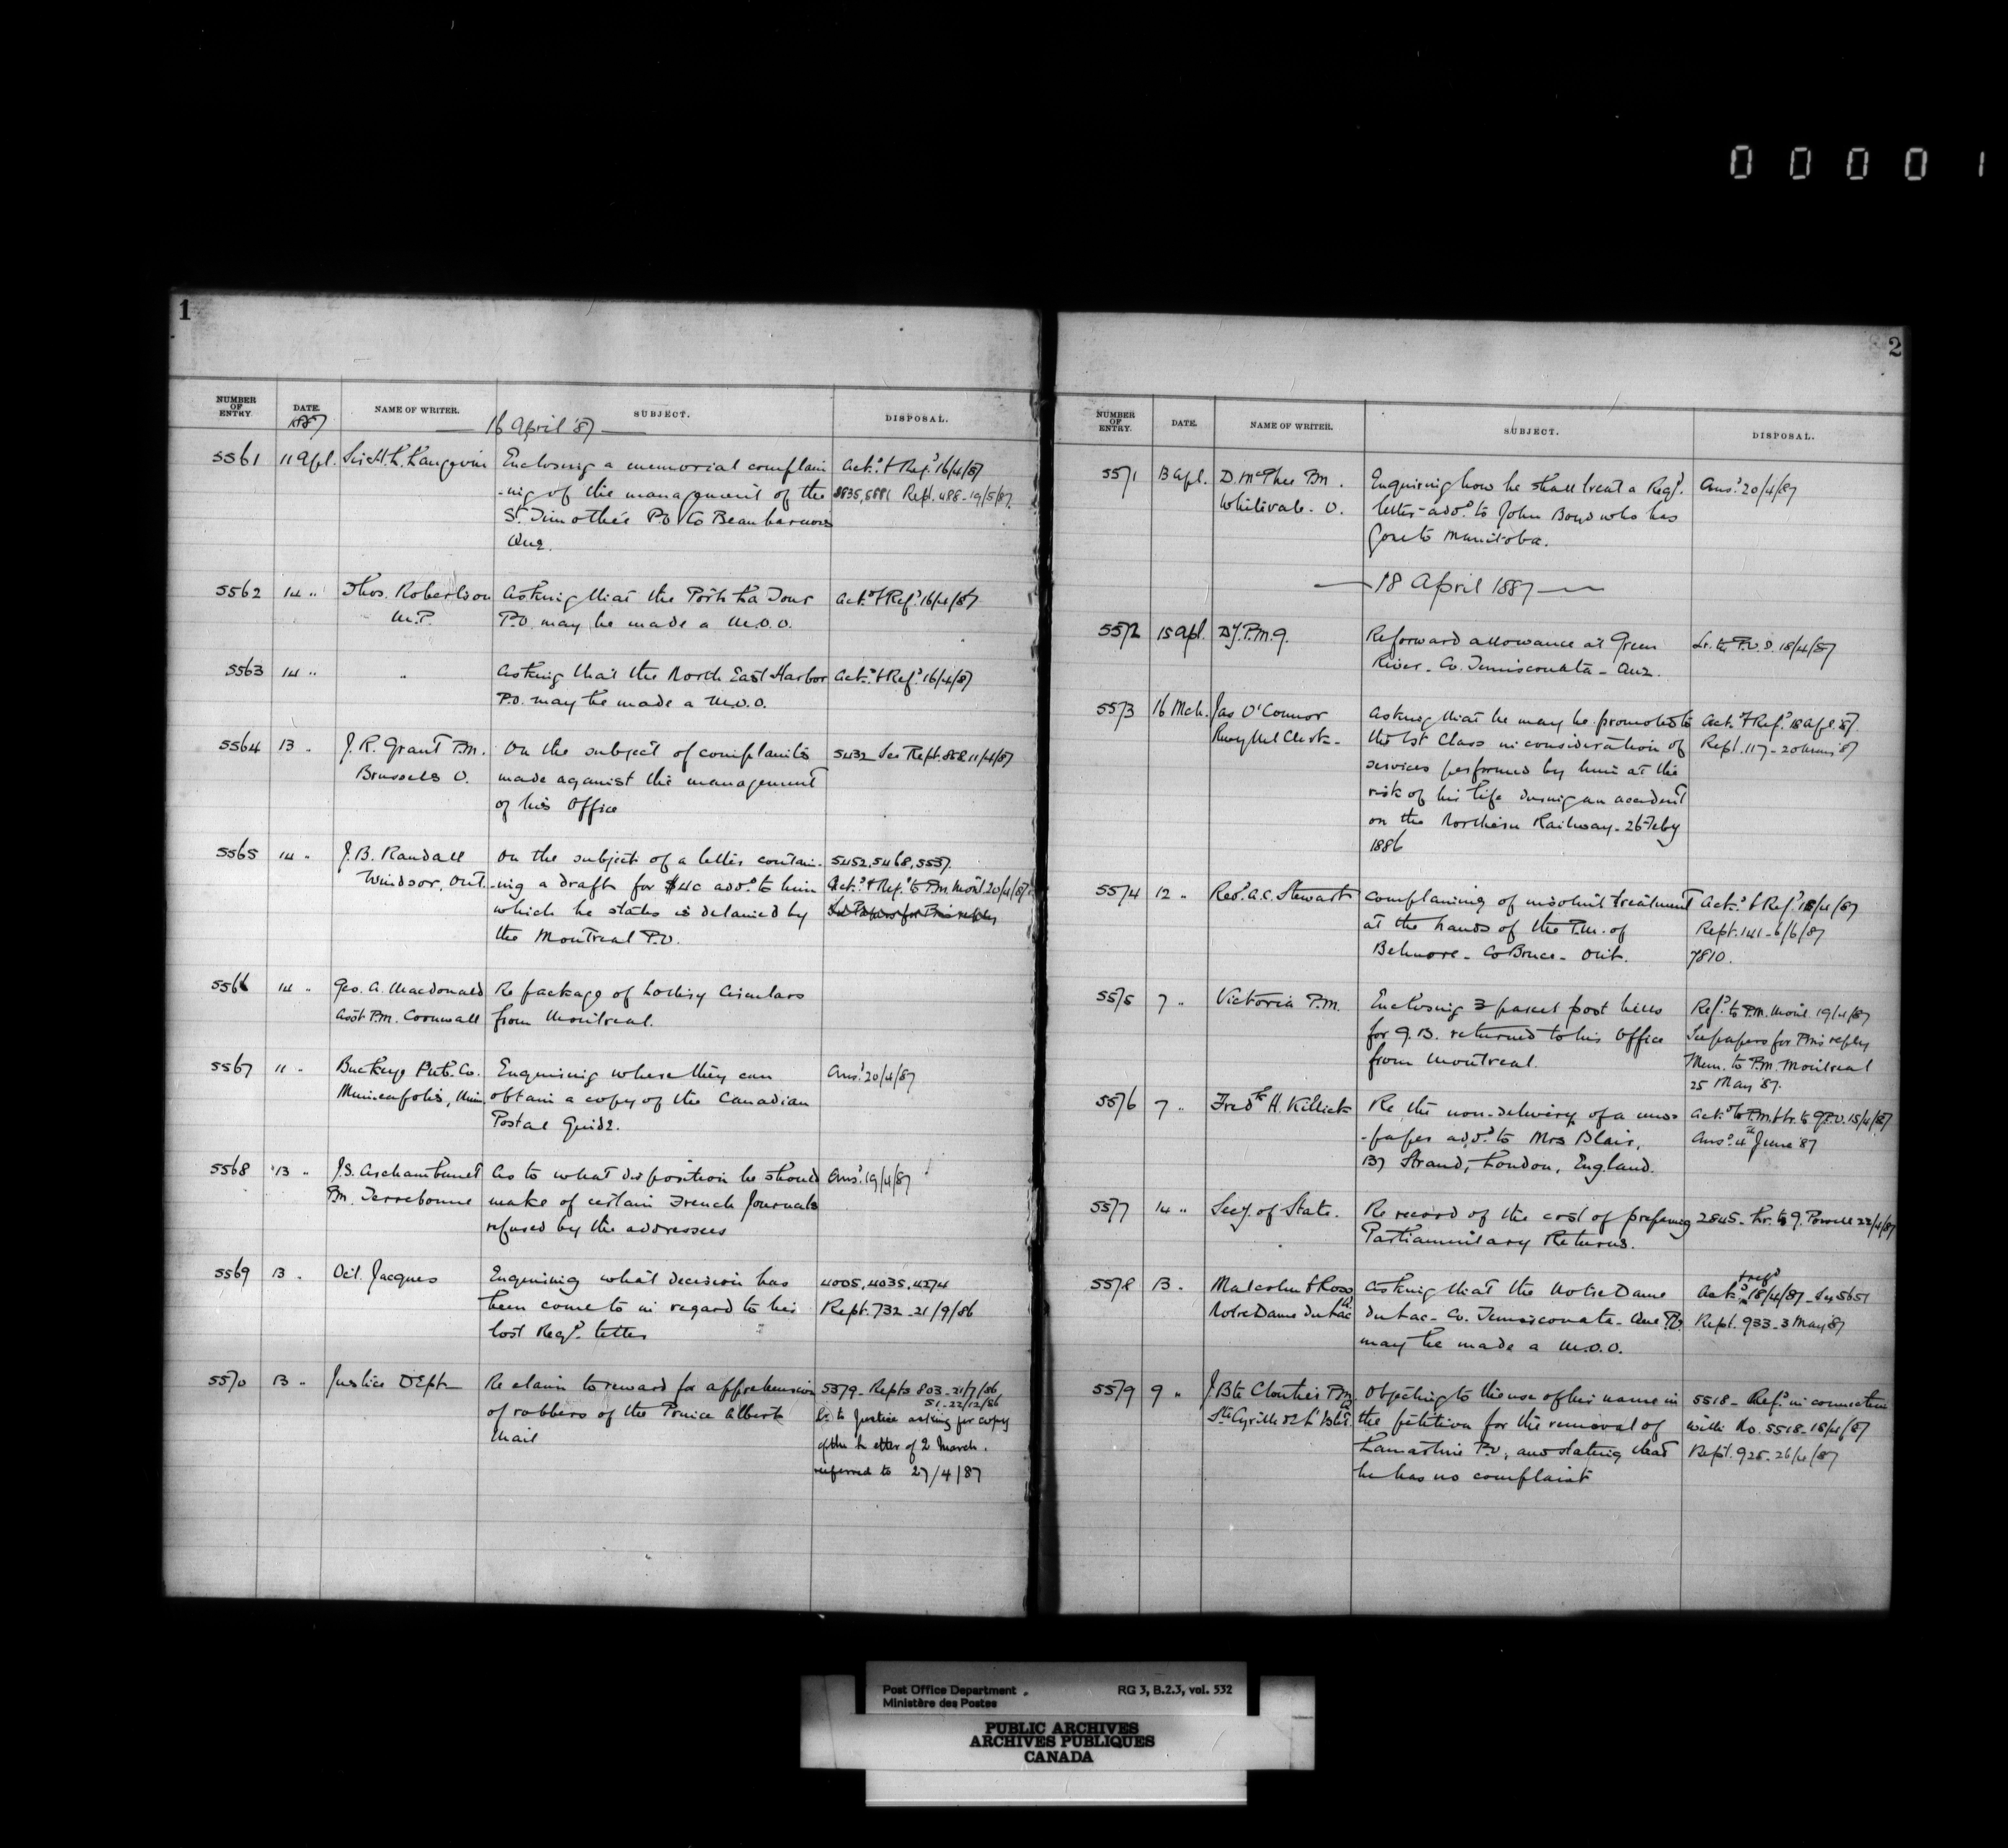 00001
1
NUMBER OF ENTRY. DATE. NAME OF WRITER. SUBJECT. DISPOSAL.
1887
16 April '87
5561 11 Apl. Sir H. L. Langevin Enclosing a memorial complain Ack.d & Ref.d 16/4/87
-ing of the management of the 5835, 5881 Rept. 488 - 19/5/87.
St. Timothée P.O. Co Beauharnois
Que.
5562 14 " Thos. Robertson Asking that the Port La Tour Ack.d & Ref.d 16/4/87
M.P. P.O. may be made a M.O.O.
5563 14 " " Asking that the North East Harbor Ack.d & Ref.d 16/4/87
P.O. may be made a M.O.O.
5564 13 " J. R. Grant P.M. On the subject of complaints 5432 See Rept. 868 11/4/87
Brussels O. made against the management
of his Office
5565 14 " J. B. Randall On the subject of a letter contain- 5452, 5468, 5537.
Windsor, Ont. -ing a draft for $40 add.d to him Ack.d & Ref.d to P.M. Mont.l 20/4/87
which he states is detained by See Papers for P.M's reply
the Montreal P.O.
5566 14 " Geo. A. Macdonald Re package of Lottery Circulars
Asst P.M. Cornwall from Montreal.
5567 11 " Buckeye Pub. Co. Enquiring where they can Ans.d 20/4/87
Minneapolis, Minn. obtain a copy of the Canadian
Postal Guide.
5568 13 " J.S. Archambault As to what disposition he should Ans.d 19/4/87
P.M. Terrebonne make of certain French Journals
refused by the addressees
5569 13 " Oct. Jacques Enquiring what decision has 4005, 4035, 4274
been come to in regard to his Rept. 732 - 21/9/86
lost Reg.d letter
5570 13 " Justice Dept. Re claim to reward for apprehension 5379 - Repts 803 - 21/7/86
of robbers of the Prince Albert 51 - 22/12/86
Mail Lr. to Justice asking for copy
of the letter of 2 March.
referred to 27/4/87
2
NUMBER OF ENTRY. DATE. NAME OF WRITER. SUBJECT. DISPOSAL.
5571 13 Apl. D. McPhee P.M. Enquiring how he shall treat a Reg.d Ans.d 20/4/87
Whitevale. O. letter add.d to John Boyd who has
gone to Manitoba.
18 April 1887
5572 15 Apl. Dy. P.M.G. Re forward allowance at Green Lr. to P.O.I. 18/4/87
River - Co. Temisconata - Que.
5573 16 Mch. Jas O'Connor Asking that he may be promoted to Ack.d & Ref.d 18 Apl. 87.
Rwy Mail Clerk - the 1st Class in consideration of Rept. 117 - 20 May '87
services performed by him at the
risk of his life during an accident
on the Northern Railway - 26 Feby
1886
5574 12 " Rev.d A.C. Stewart Complaining of insolent treatment Ack.d & Ref.d 18/4/87
at the hands of the P.M. of Rept. 141 - 6/6/87
Belmore - Co Bruce - Ont. 7810.
5575 7 " Victoria P.M. Enclosing 3 parcel post bills Ref.d to P.M. Mont.l 19/4/87
for G.B. returned to his Office See papers for P.M's reply
from Montreal. Mem. to P.M. Montreal
25 May '87.
5576 7 " Fred.k H. Killick Re the non-delivery of a news- Ack.d to P.M. & Lr. to G.P.O. 15/4/87
-paper add.d to Mrs Blair, Ans.d 4th June '87
137 Strand, London, England.
5577 14 " Secy. of State. Re record of the cost of preparing 2845 - Lr. to G. Powell 22/4/87
Parliamentary Returns.
5578 13 " Malcolm & Ross Asking that the Notre Dame Ack.d & ref.d 18/4/87 - See 5651
Notre Dame du Lac du Lac - Co. Temisconata - Que P.O. Rept. 933 - 3 May '87
may be made a M.O.O.
5579 9 " J. Bte Cloutier P.M. Objecting to the use of his name in 5518 - Ref.d in connection
Ste Cyrille de L'Islet. the petition for the removal of with No. 5518 - 18/4/87
Lamartine P.O., and stating that Rept. 925 - 26/4/87
he has no complaint
Post Office Department RG 3, B.2.3, vol. 532
Ministère des Postes
PUBLIC ARCHIVES
ARCHIVES PUBLIQUES
CANADA